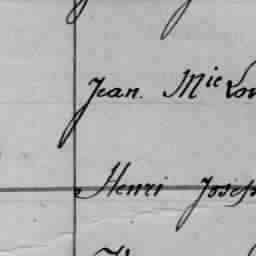 Jean. Mie Lou
Henri Joseph